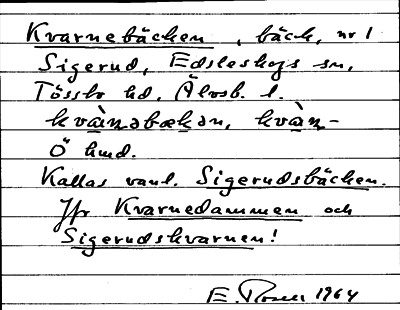 Kvarnebäcken, bäck, nr 1
Sigerud, Edsleskogs sn,
Tössbo hd, Älvsb. l.
kvànəbækən, kvàn-
Ö hmd.
Kallas vanl. Sigerudsbäcken.
Jfr Kvarnedammen och
Sigerudskvarnen!
E. Rosell 1964